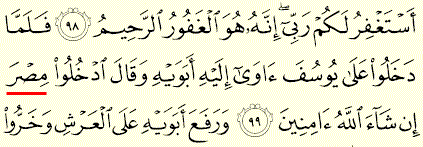 أَسْتَغْفِرُ لَكُمْ رَبِّىٓ ۖ إِنَّهُۥ هُوَ ٱلْغَفُورُ ٱلرَّحِيمُ ٩٨ فَلَمَّا
دَخَلُوا۟ عَلَىٰ يُوسُفَ ءَاوَىٰٓ إِلَيْهِ أَبَوَيْهِ وَقَالَ ٱدْخُلُوا۟ مِصْرَ
إِن شَآءَ ٱللَّهُ ءَامِنِينَ ٩٩ وَرَفَعَ أَبَوَيْهِ عَلَى ٱلْعَرْشِ وَخَرُّوا۟